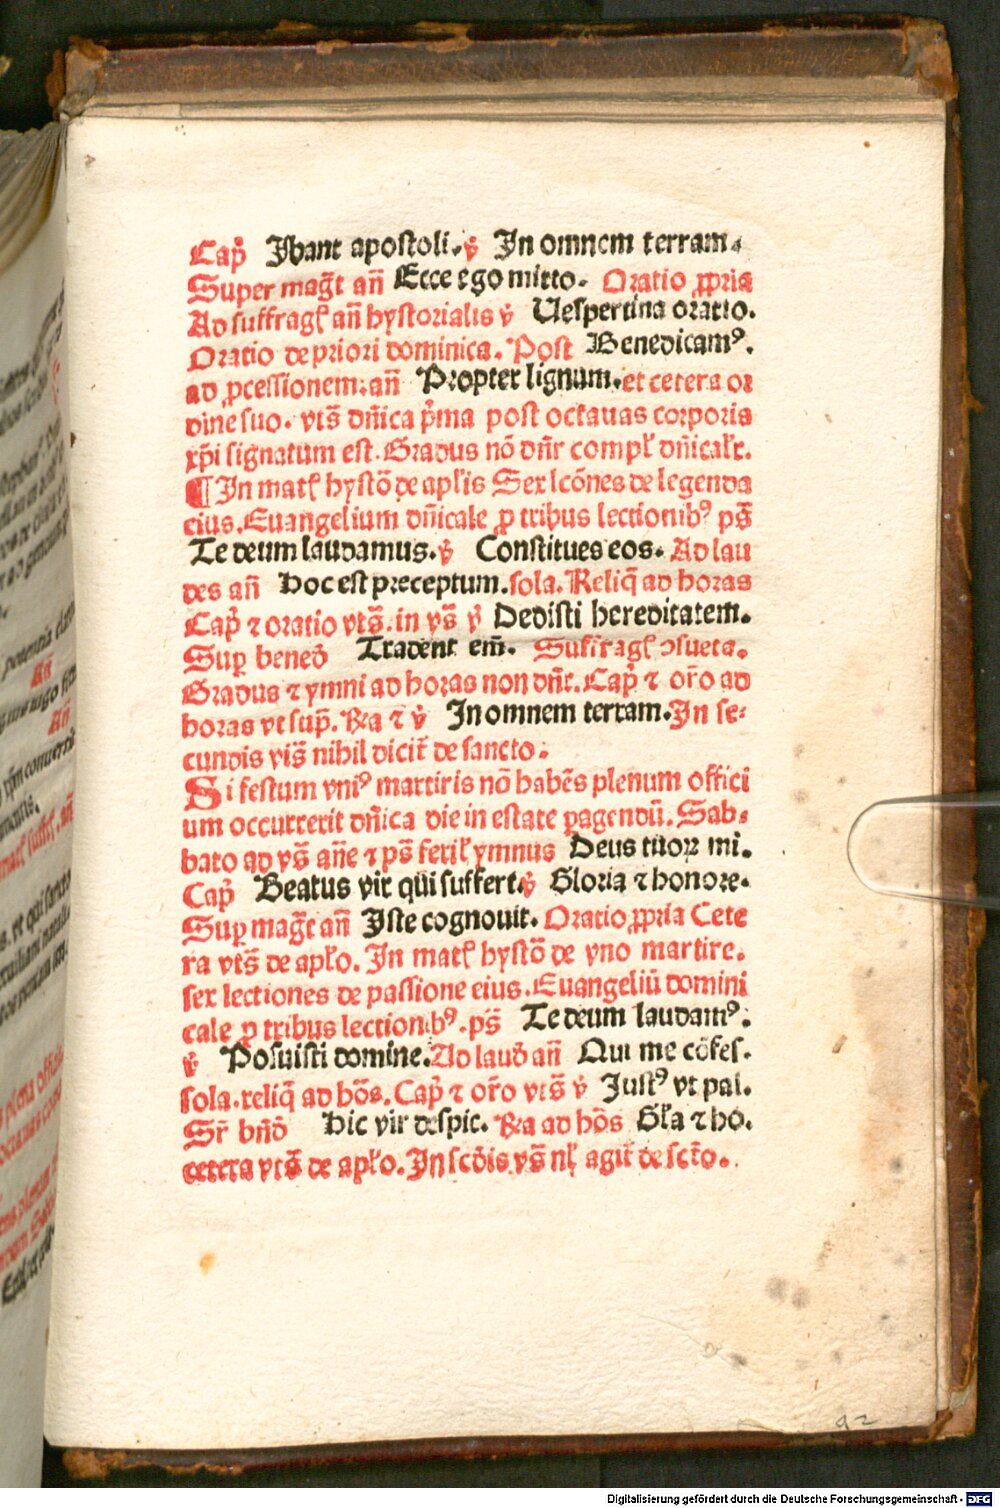 Capͥ Ibant apostoli. ꝟ In omnem terram.
Super mag̃t añ Ecce ego mitto. Oratio ꝓpria
Ad suffragꝭ añ hystorialis ꝟ Uespertina oratio.
Oratio de priori dominica. Post Benedicamꝰ.
ad ꝓcessionem: añ Propter lignum. et cetera or
dine suo. vts̃ dñica p̃ma post octauas corporis
xp̃i signatum est. Gradus nõ dñr compl' dñicalr̃.
¶ In matꝭ hystõ de apl'is Sex lcõnes de legenda
eius. Euangelium dñicale ꝓ tribus lectionibꝰ ps̃
Te deum laudamus. ꝟ Constitues eos. Ad lau
des añ Hoc est preceptum. sola. Reliq̃ ad horas
Capͥ ⁊ oratio vts̃. in vs̃ ꝟ Dedisti hereditatem.
Suꝑ bened̃ Tradent em̃. Suffragꝭ ꝯsueta.
Gradus ⁊ ymni ad horas non dñt. Capͥ ⁊ orõ ad
horas vt sup̃. Rͣa ⁊ ꝟ In omnem terram. In se:
cundis vis̃ nihil dicit̃ de sancto.
Si festum vniꝰ martiris nõ habẽs plenum offici
um occurrerit dñica die in estate ꝑagendũ. Sab:
bato ad vs̃ añe ⁊ ps̃ feril' ymnus Deus tuoꝝ mi.
Capͥ Beatus vir qui suffert. ꝟ Gloria ⁊ honore.
Suꝑ mag̃t añ Iste cognouit. Oratio ꝓpria Cete
ra vts̃ de apl'o. In matꝭ hystõ de vno martire.
sex lectiones de passione eius. Euangeliũ domini
cale ꝓ tribus lectionibꝰ. ps̃ Te deum laudamꝰ.
ꝟ Posuisti domine. Ad laud̃ añ Qui me cõfes.
sola. reliq̃ ad hõs. Capͥ ⁊ orõ vts̃ ꝟ Justꝰ vt pal.
Sr̃ bñd̃ Hic vir despic. Rͣa ad hõs Gl'a ⁊ ho.
cetera vts̃ de apl'o. In scd̃is vs̃ nl' agit̃ de sctõ.
92
Digitalisierung gefördert durch die Deutsche Forschungsgemeinschaft - DFG